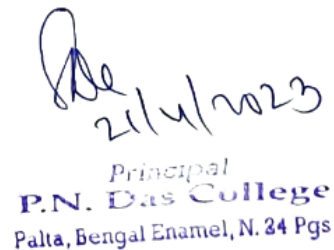 21/4/2023
Principal
P.N. Das College
Palta, Bengal Enamel, N. 24 Pgs.